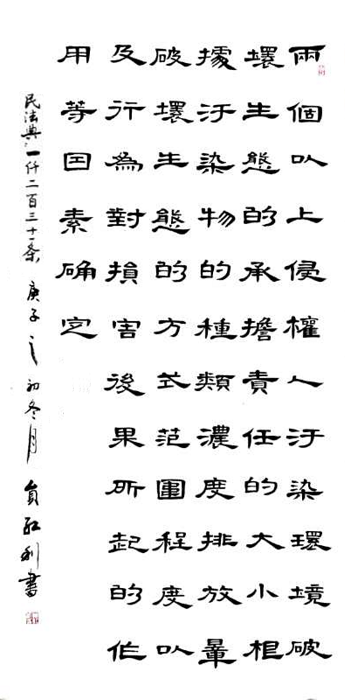 兩個以上侵權人汙染環境破
壞生態的承擔責任的大小根
據汙染物的種類濃度排放量
破壞生態的方式范圍程度以
及行為對損害後果所起的作
用等因素确定
民法典一仟二百三十一条 庚子之初冬月 員红利書